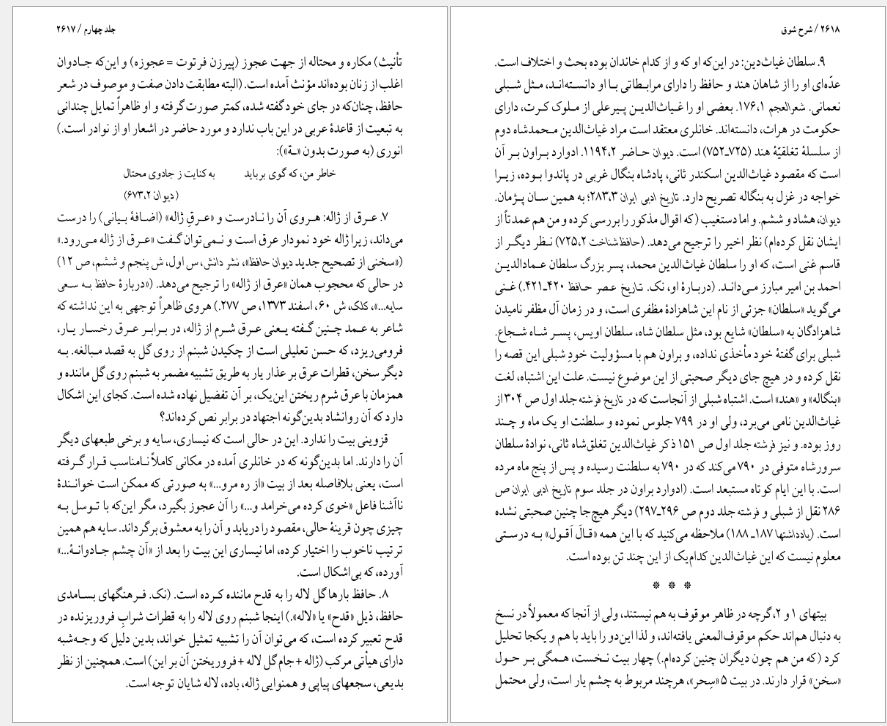 جلد چهارم / ۲۶۱۷
تأنیث) مکاره و محتاله از جهت عجوز (پیرزن فرتوت = عجوزه) و این‌که جادوان
اغلب از زنان بوده‌اند مؤنث آمده است. (البته مطابقت دادن صفت و موصوف در شعر
حافظ، چنان‌که در جای خود گفته شده، کمتر صورت گرفته و او ظاهراً تمایل چندانی
به تبعیت از قاعدهٔ عربی در این باب ندارد و مورد حاضر در اشعار او از نوادر است.)
انوری (به صورت بدون «ـة»):
خاطر من، که گوی برباید به کنایت ز جادوی محتال
(دیوان ۶۷۳،۲)
۷. عرق از ژاله: هروی آن را نادرست و «عرقِ ژاله» (اضافهٔ بیانی) را درست
می‌داند، زیرا ژاله خود نمودار عرق است و نمی‌توان گفت «عرق از ژاله می‌رود.»
(«سخنی از تصحیح جدید دیوان حافظ»، نشر دانش، س اول، ش پنجم و ششم، ص ۱۲)
در حالی که محجوب همان «عرق از ژاله» را ترجیح می‌دهد. («دربارهٔ حافظ به سعی
سایه...»، کلک، ش ۶۰، اسفند ۱۳۷۳، ص ۲۷۷.) هروی ظاهراً توجهی به این نداشته که
شاعر به عمد چنین گفته یعنی عرق شرم از ژاله، در برابر عرق رخسار یار،
فرومی‌ریزد، که حسن تعلیلی است از چکیدن شبنم از روی گل به قصد مبالغه. به
دیگر سخن، قطرات عرق بر عذار یار به طریق تشبیه مضمر به شبنم روی گل مانند و
همزمان با عرق شرم ریختن این‌یک، بر آن تفضیل نهاده شده است. کجای این اشکال
دارد که آن روانشاد بدین‌گونه اجتهاد در برابر نص کرده‌اند؟
قزوینی بیت را ندارد. این در حالی است که نیساری، سایه و برخی طبعهای دیگر
آن را دارند. اما بدین‌گونه که در خانلری آمده در مکانی کاملاً نامناسب قرار گرفته
است، یعنی بلافاصله بعد از بیت «از ره مرو...» به صورتی که ممکن است خوانندهٔ
ناآشنا فاعل «خوی کرده می‌خرامد و...» را آن عجوز بگیرد، مگر این‌که با توسل به
چیزی چون قرینهٔ حالی، مقصود را دریابد و آن را به معشوق برگرداند. سایه هم همین
ترتیب ناخوب را اختیار کرده، اما نیساری این بیت را بعد از «آن چشم جادوانهٔ...»
آورده، که بی‌اشکال است.
۸. حافظ بارها گل لاله را به قدح ماننده کرده است. (نک. فرهنگهای بسامدی
حافظ، ذیل «قدح» یا «لاله».) اینجا شبنم روی لاله را به قطرات شرابِ فروریزنده در
قدح تعبیر کرده است، که می‌توان آن را تشبیه تمثیل خواند، بدین دلیل که وجه‌شبه
دارای هیأتی مرکب (ژاله + جام گل لاله + فروریختن آن بر این) است. همچنین از نظر
بدیعی، سجعهای پیاپی و همنوایی ژاله، باده، لاله شایان توجه است.
۲۶۱۸ / شرح شوق
۹. سلطان غیاث‌دین: در این‌که او که و از کدام خاندان بوده بحث و اختلاف است.
عدّه‌ای او را از شاهان هند و حافظ را دارای مرابطاتی با او دانسته‌اند، مثل شبلی
نعمانی. شعرالعجم ۱۷۶،۱. بعضی او را غیاث‌الدین پیرعلی از ملوک کرت، دارای
حکومت در هرات، دانسته‌اند. خانلری معتقد است مراد غیاث‌الدین محمدشاه دوم
از سلسلهٔ تغلقیّهٔ هند (۷۲۵ـ۷۵۲) است. دیوان حاضر ۱۱۹۴،۲. ادوارد براون بر آن
است که مقصود غیاث‌الدین اسکندر ثانی، پادشاه بنگال غربی در پاندوا بوده، زیرا
خواجه در غزل به بنگاله تصریح دارد. تاریخ ادبی ایران ۲۸۳،۳؛ به همین سان پژمان.
دیوان، هشتاد و ششم. و اما دستغیب (که اقوال مذکور را بررسی کرده و من هم عمدتاً از
ایشان نقل کرده‌ام) نظر اخیر را ترجیح می‌دهد. (حافظ‌شناخت ۷۲۵،۲) نظر دیگر از
قاسم غنی است، که او را سلطان غیاث‌الدین محمد، پسر بزرگ سلطان عمادالدین
احمد بن امیر مبارز می‌داند. (دربارهٔ او، نک. تاریخ عصر حافظ ۴۲۰ـ۴۲۱.) غنی
می‌گوید «سلطان» جزئی از نام این شاهزادهٔ مظفری است، و در زمان آل مظفر نامیدن
شاهزادگان به «سلطان» شایع بود، مثل سلطان شاه، سلطان اویس، پسر شاه شجاع.
شبلی برای گفتهٔ خود مأخذی نداده، و براون هم با مسؤولیت خودِ شبلی این قصه را
نقل کرده و در هیچ جای دیگر صحبتی از این موضوع نیست. علت این اشتباه، لغت
«بنگاله» و «هند» است. اشتباه شبلی از آنجاست که در تاریخ فرشته جلد اول ص ۳۰۴ از
غیاث‌الدین نامی می‌برد، ولی او در ۷۹۹ جلوس نموده و سلطنت او یک ماه و چند
روز بوده. و نیز فرشته جلد اول ص ۱۵۱ ذکر غیاث‌الدین تغلق‌شاه ثانی، نوادهٔ سلطان
سرورشاه متوفی در ۷۹۰ می‌کند که در ۷۹۰ به سلطنت رسیده و پس از پنج ماه مرده
است. با این ایام کوتاه مستبعد است. (ادوارد براون در جلد سوم تاریخ ادبی ایران ص
۲۸۶ نقل از شبلی و فرشته جلد دوم ص ۲۹۶ـ۲۹۷) دیگر هیچ‌جا چنین صحبتی نشده
است. (یادداشتها ۱۸۷ـ ۱۸۸) ملاحظه می‌کنید که با این همه «قالَ أقول» به درستی
معلوم نیست که این غیاث‌الدین کدام‌یک از این چند تن بوده است.
* * *
بیتهای ۱ و ۲، گرچه در ظاهر موقوف به هم نیستند، ولی از آنجا که معمولاً در نسخ
به دنبال هم‌اند حکم موقوف‌المعنی یافته‌اند، و لذا این‌دو را باید با هم و یکجا تحلیل
کرد (که من هم چون دیگران چنین کرده‌ام.) چهار بیت نخست، همگی بر حول
«سخن» قرار دارند. در بیت ۵ «سِحر»، هرچند مربوط به چشم یار است، ولی محتمل